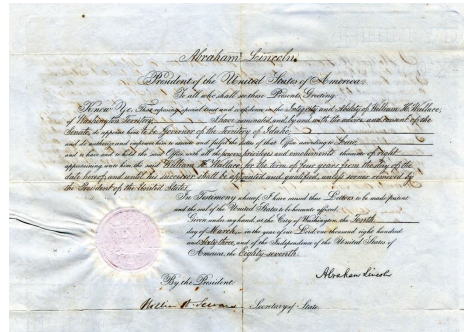 Abraham Lincoln,
President of the United States of America.
To all who shall see these Presents, Greeting.
Know Ye, That reposing special trust and confidence in the Integrity and Ability of William H. Wallace,
of Washington Territory, I have nominated, and by and with the advice and consent of the
Senate, do appoint him to be Governor of the Territory of Idaho:
and do authorize and empower him to execute and fulfil the duties of that Office according to Law;
and to have and to hold the said Office, with all the powers, privileges and emoluments thereunto of right
appertaining unto him the said William H. Wallace, for the term of four years from the day of the
date hereof, and until his successor shall be appointed and qualified, unless sooner removed by
the President of the United States.
In Testimony whereof, I have caused these Letters to be made patent
and the seal of the United States to be hereunto affixed.
Given under my hand, at the City of Washington, the Tenth
day of March, in the year of our Lord one thousand eight hundred
and sixty three, and of the Independence of the United States of
America, the Eighty-seventh.
Abraham Lincoln
By the President:
William H. Seward Secretary of State.